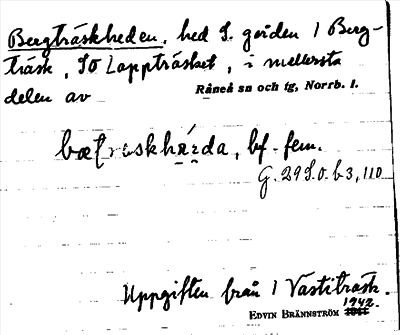 Bergträskheden, hed S. gården 1 Berg-
träsk, SO Lappträsket, i mellersta
delen av Råneå sn och tg, Norrb. l.
bætraskhæda, bf. fem.
G. 29 S.O. b3, 110
Uppgiften från 1 Västiträsk.
1942.
EDVIN BRÄNNSTRÖM 1941